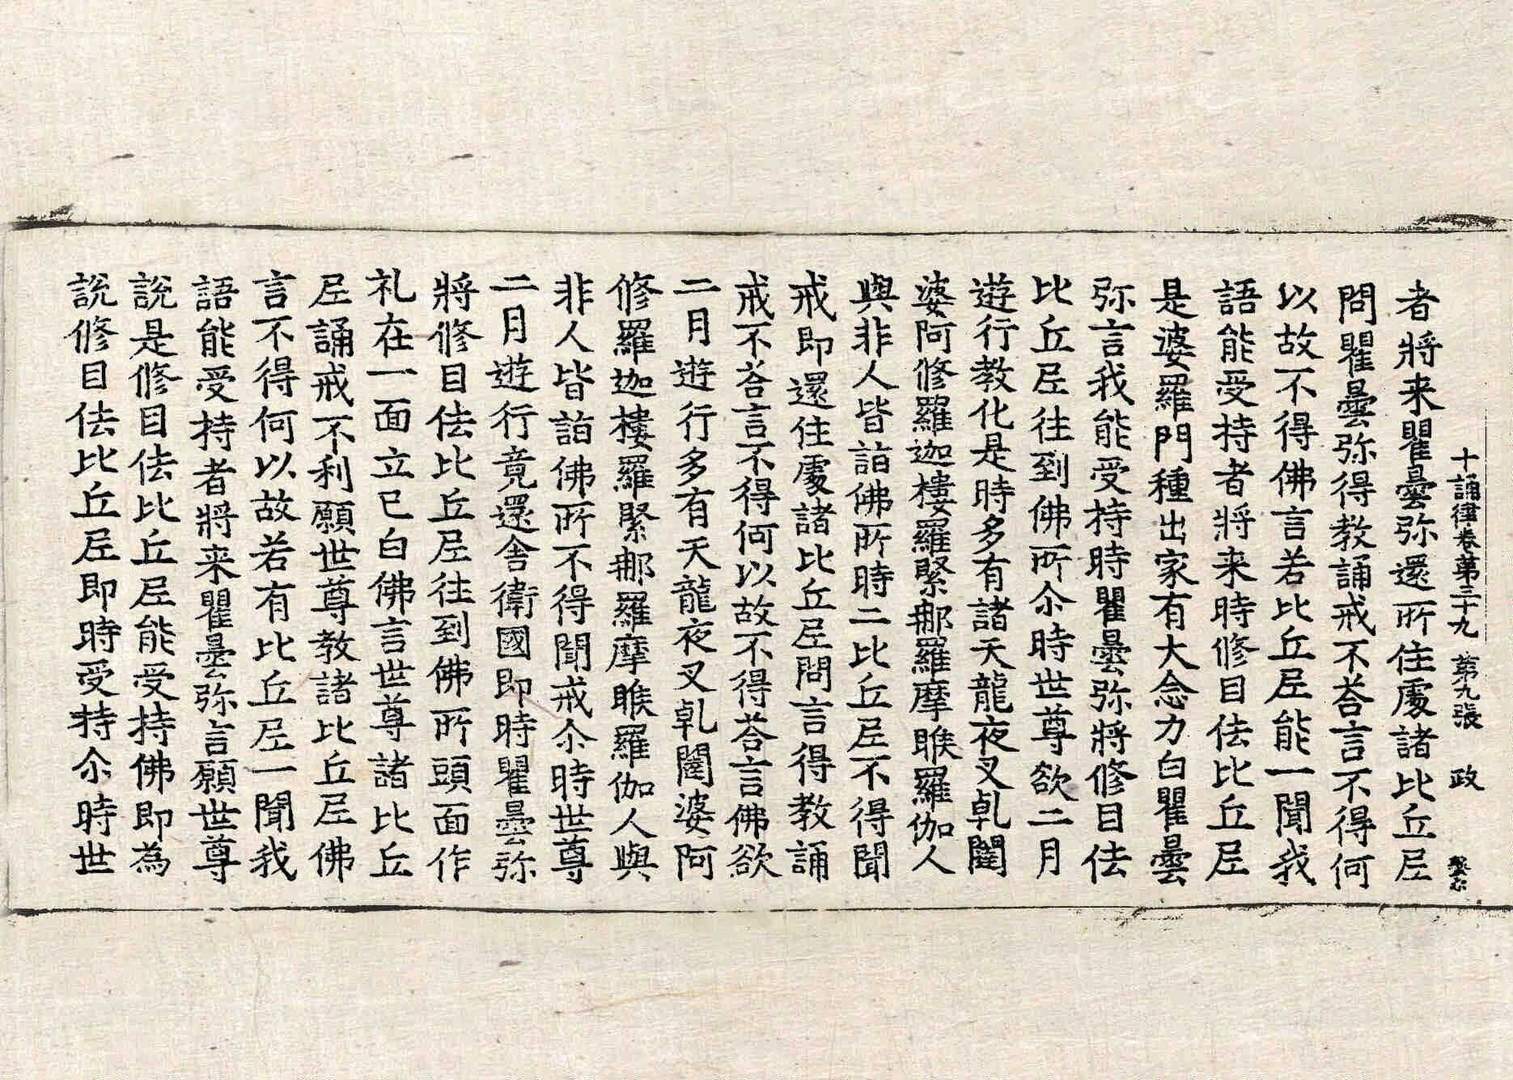 十誦律卷第三十九 第九張 政
者將来瞿曇弥還所住處諸比丘𡰱
問瞿曇弥得教誦戒不荅言不得何
以故不得佛言若比丘𡰱能一聞我
語能受持者將来時修目佉比丘𡰱
是婆羅門種出家有大念力白瞿曇
弥言我能受持時瞿曇弥將修目佉
比丘𡰱往到佛所尒時世尊欲二月
遊行教化是時多有諸天龍夜叉乹闥
婆阿修羅迦樓羅緊那羅摩睺羅伽人
與非人皆詣佛所時二比丘𡰱不得聞
戒即還住處諸比丘𡰱問言得教誦
戒不荅言不得何以故不得荅言佛欲
二月遊行多有天龍夜叉乹闥婆阿
修羅迦樓羅緊那羅摩睺羅伽人與
非人皆詣佛所不得聞戒尒時世尊
二月遊行竟還舍衛國即時瞿曇弥
將修目佉比丘𡰱往到佛所頭面作
礼在一面立已白佛言世尊諸比丘
𡰱誦戒不利願世尊教諸比丘𡰱佛
言不得何以故若有比丘𡰱一聞我
語能受持者將来瞿曇弥言願世尊
說是修目佉比丘𡰱能受持佛即為
說修目佉比丘𡰱即時受持尒時世